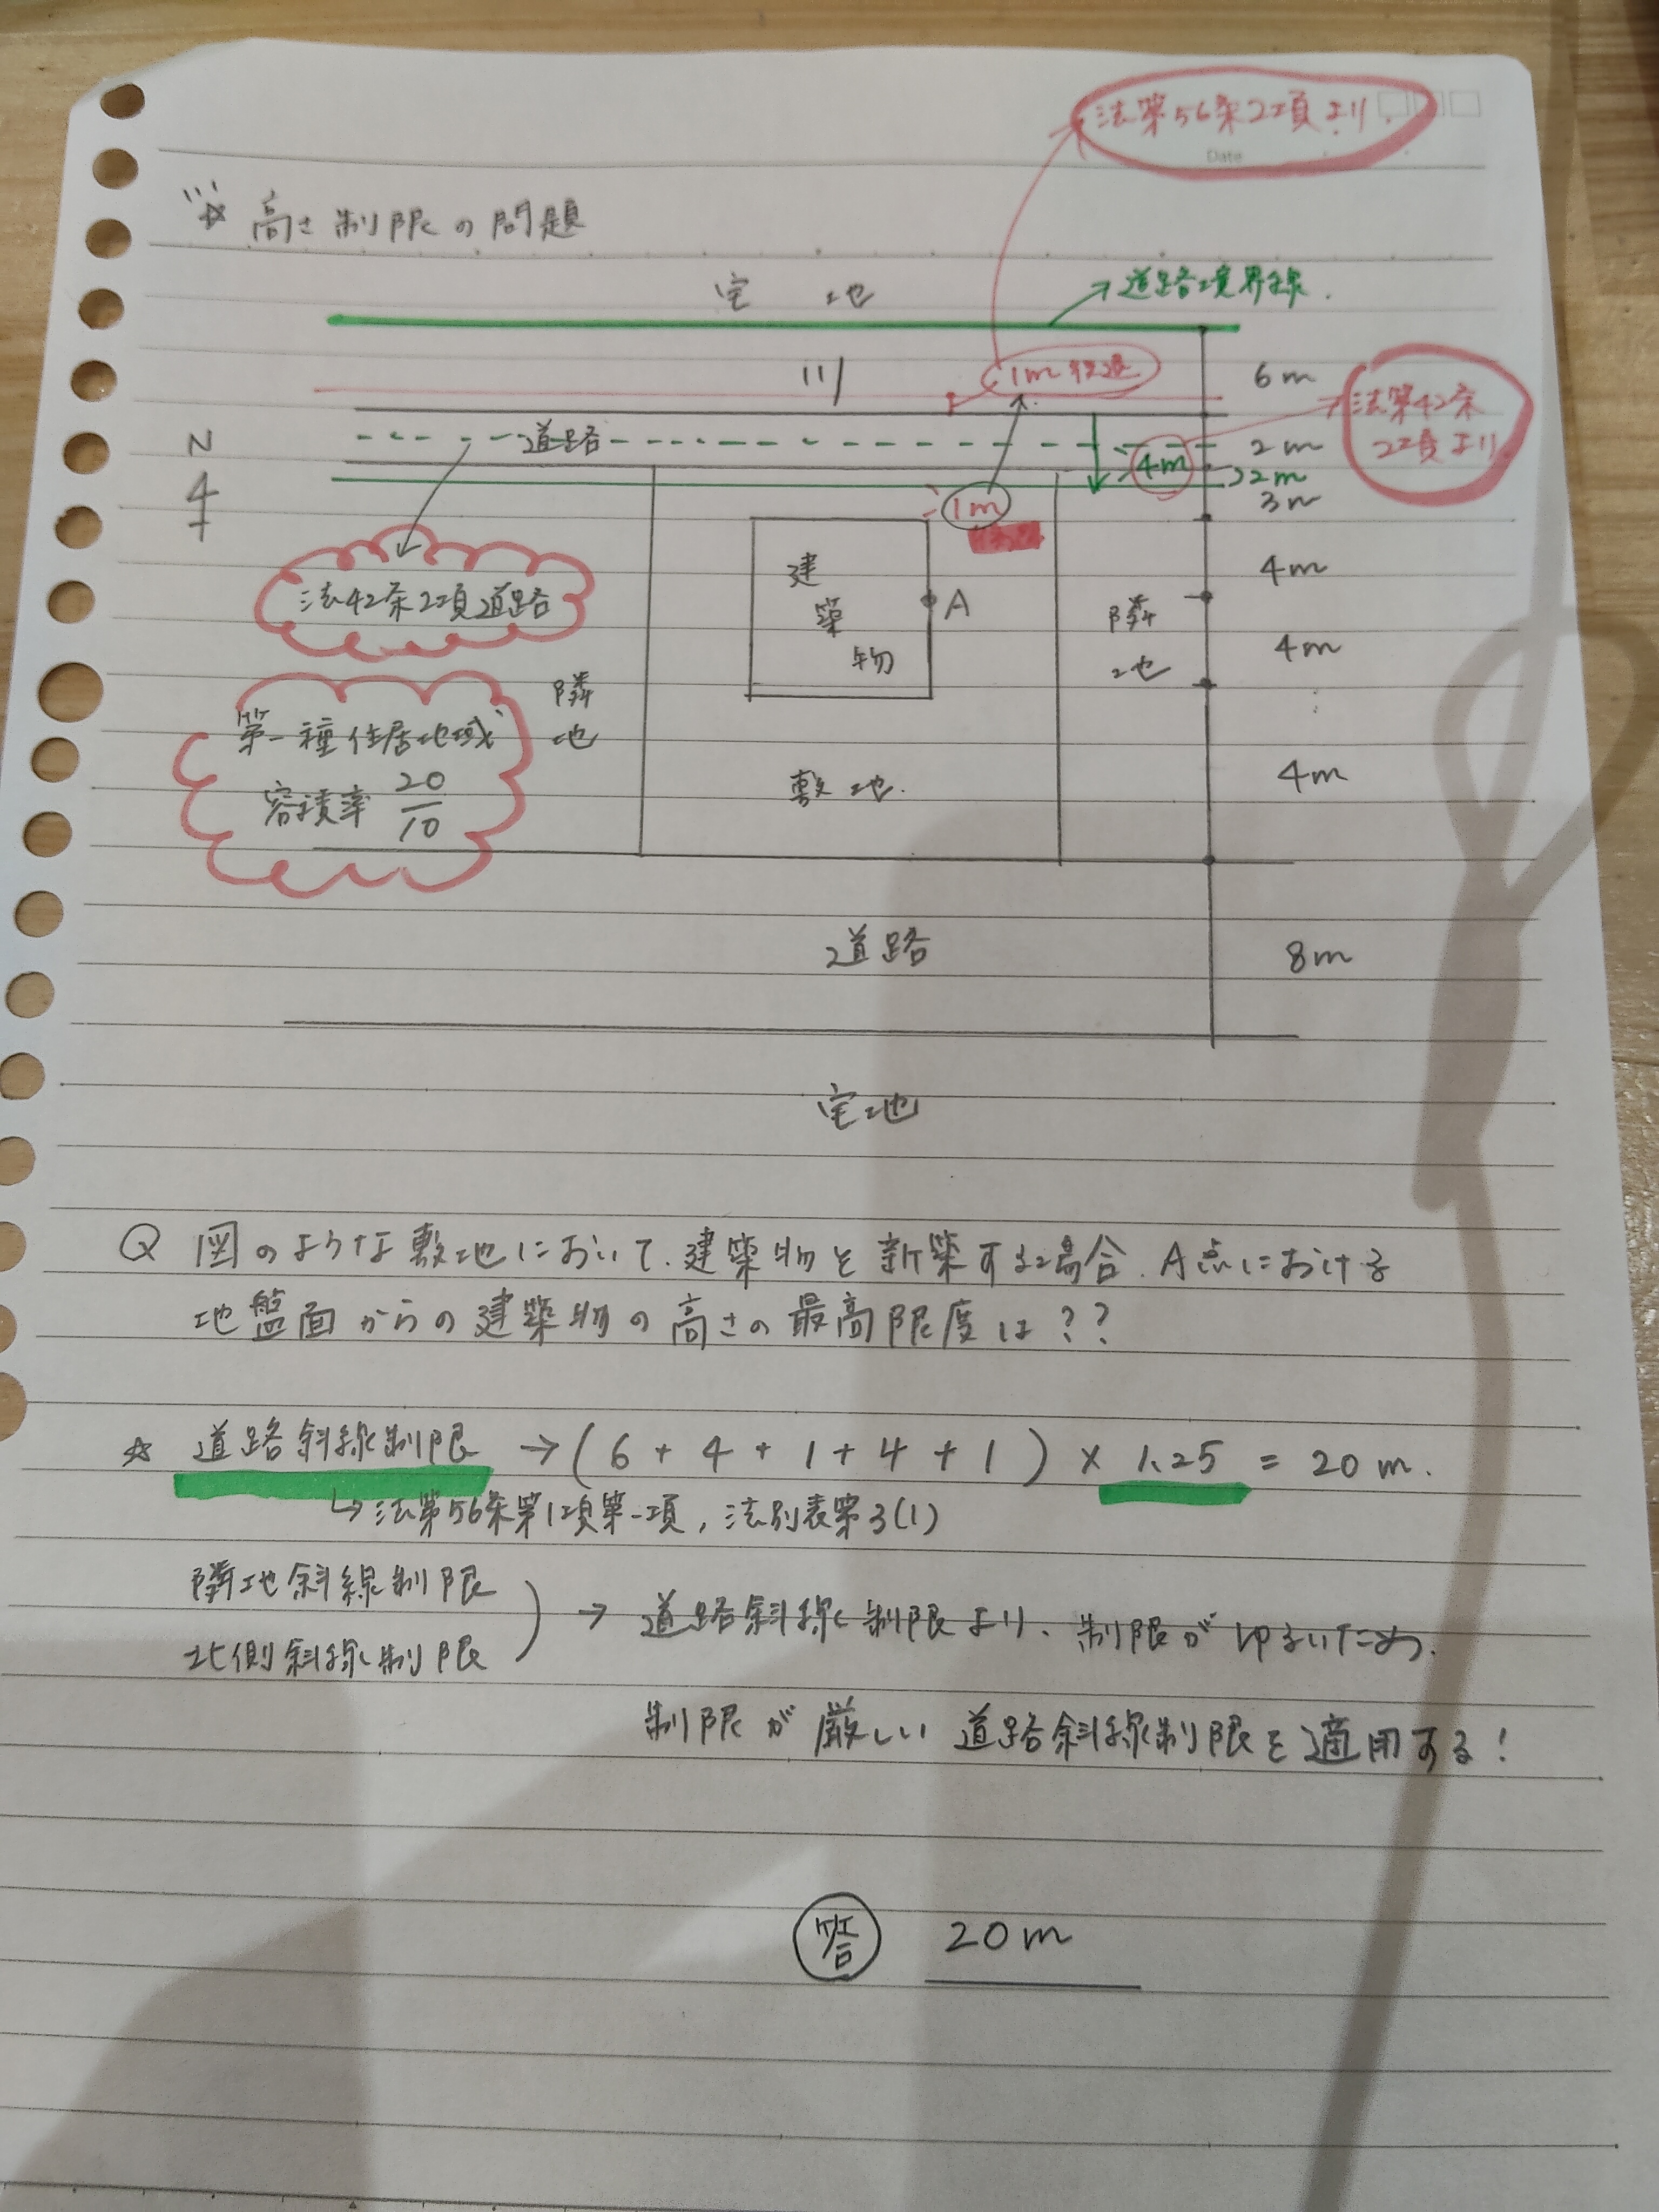 法第56条2項より.
Date
☆ 高さ制限の問題
宅 地
道路境界線.
川
1m後退
6m
法第42条
2項より
N
道路
4m
2m
2m
1m
3m
法42条2項道路
建
築
物
A
隣
地
4m
4m
隣
地
第一種住居地域
容積率 20/10
敷地.
4m
道路
8m
宅地
Q 図のような敷地において、建築物を新築する場合、A点における
地盤面からの建築物の高さの最高限度は??
☆ 道路斜線制限 → (6 + 4 + 1 + 4 + 1) × 1.25 = 20m.
↳ 法第56条第1項第一項, 法別表第3(1)
隣地斜線制限
北側斜線制限
) → 道路斜線制限より、制限がゆるいため.
制限が厳しい道路斜線制限を適用する!
答 20m